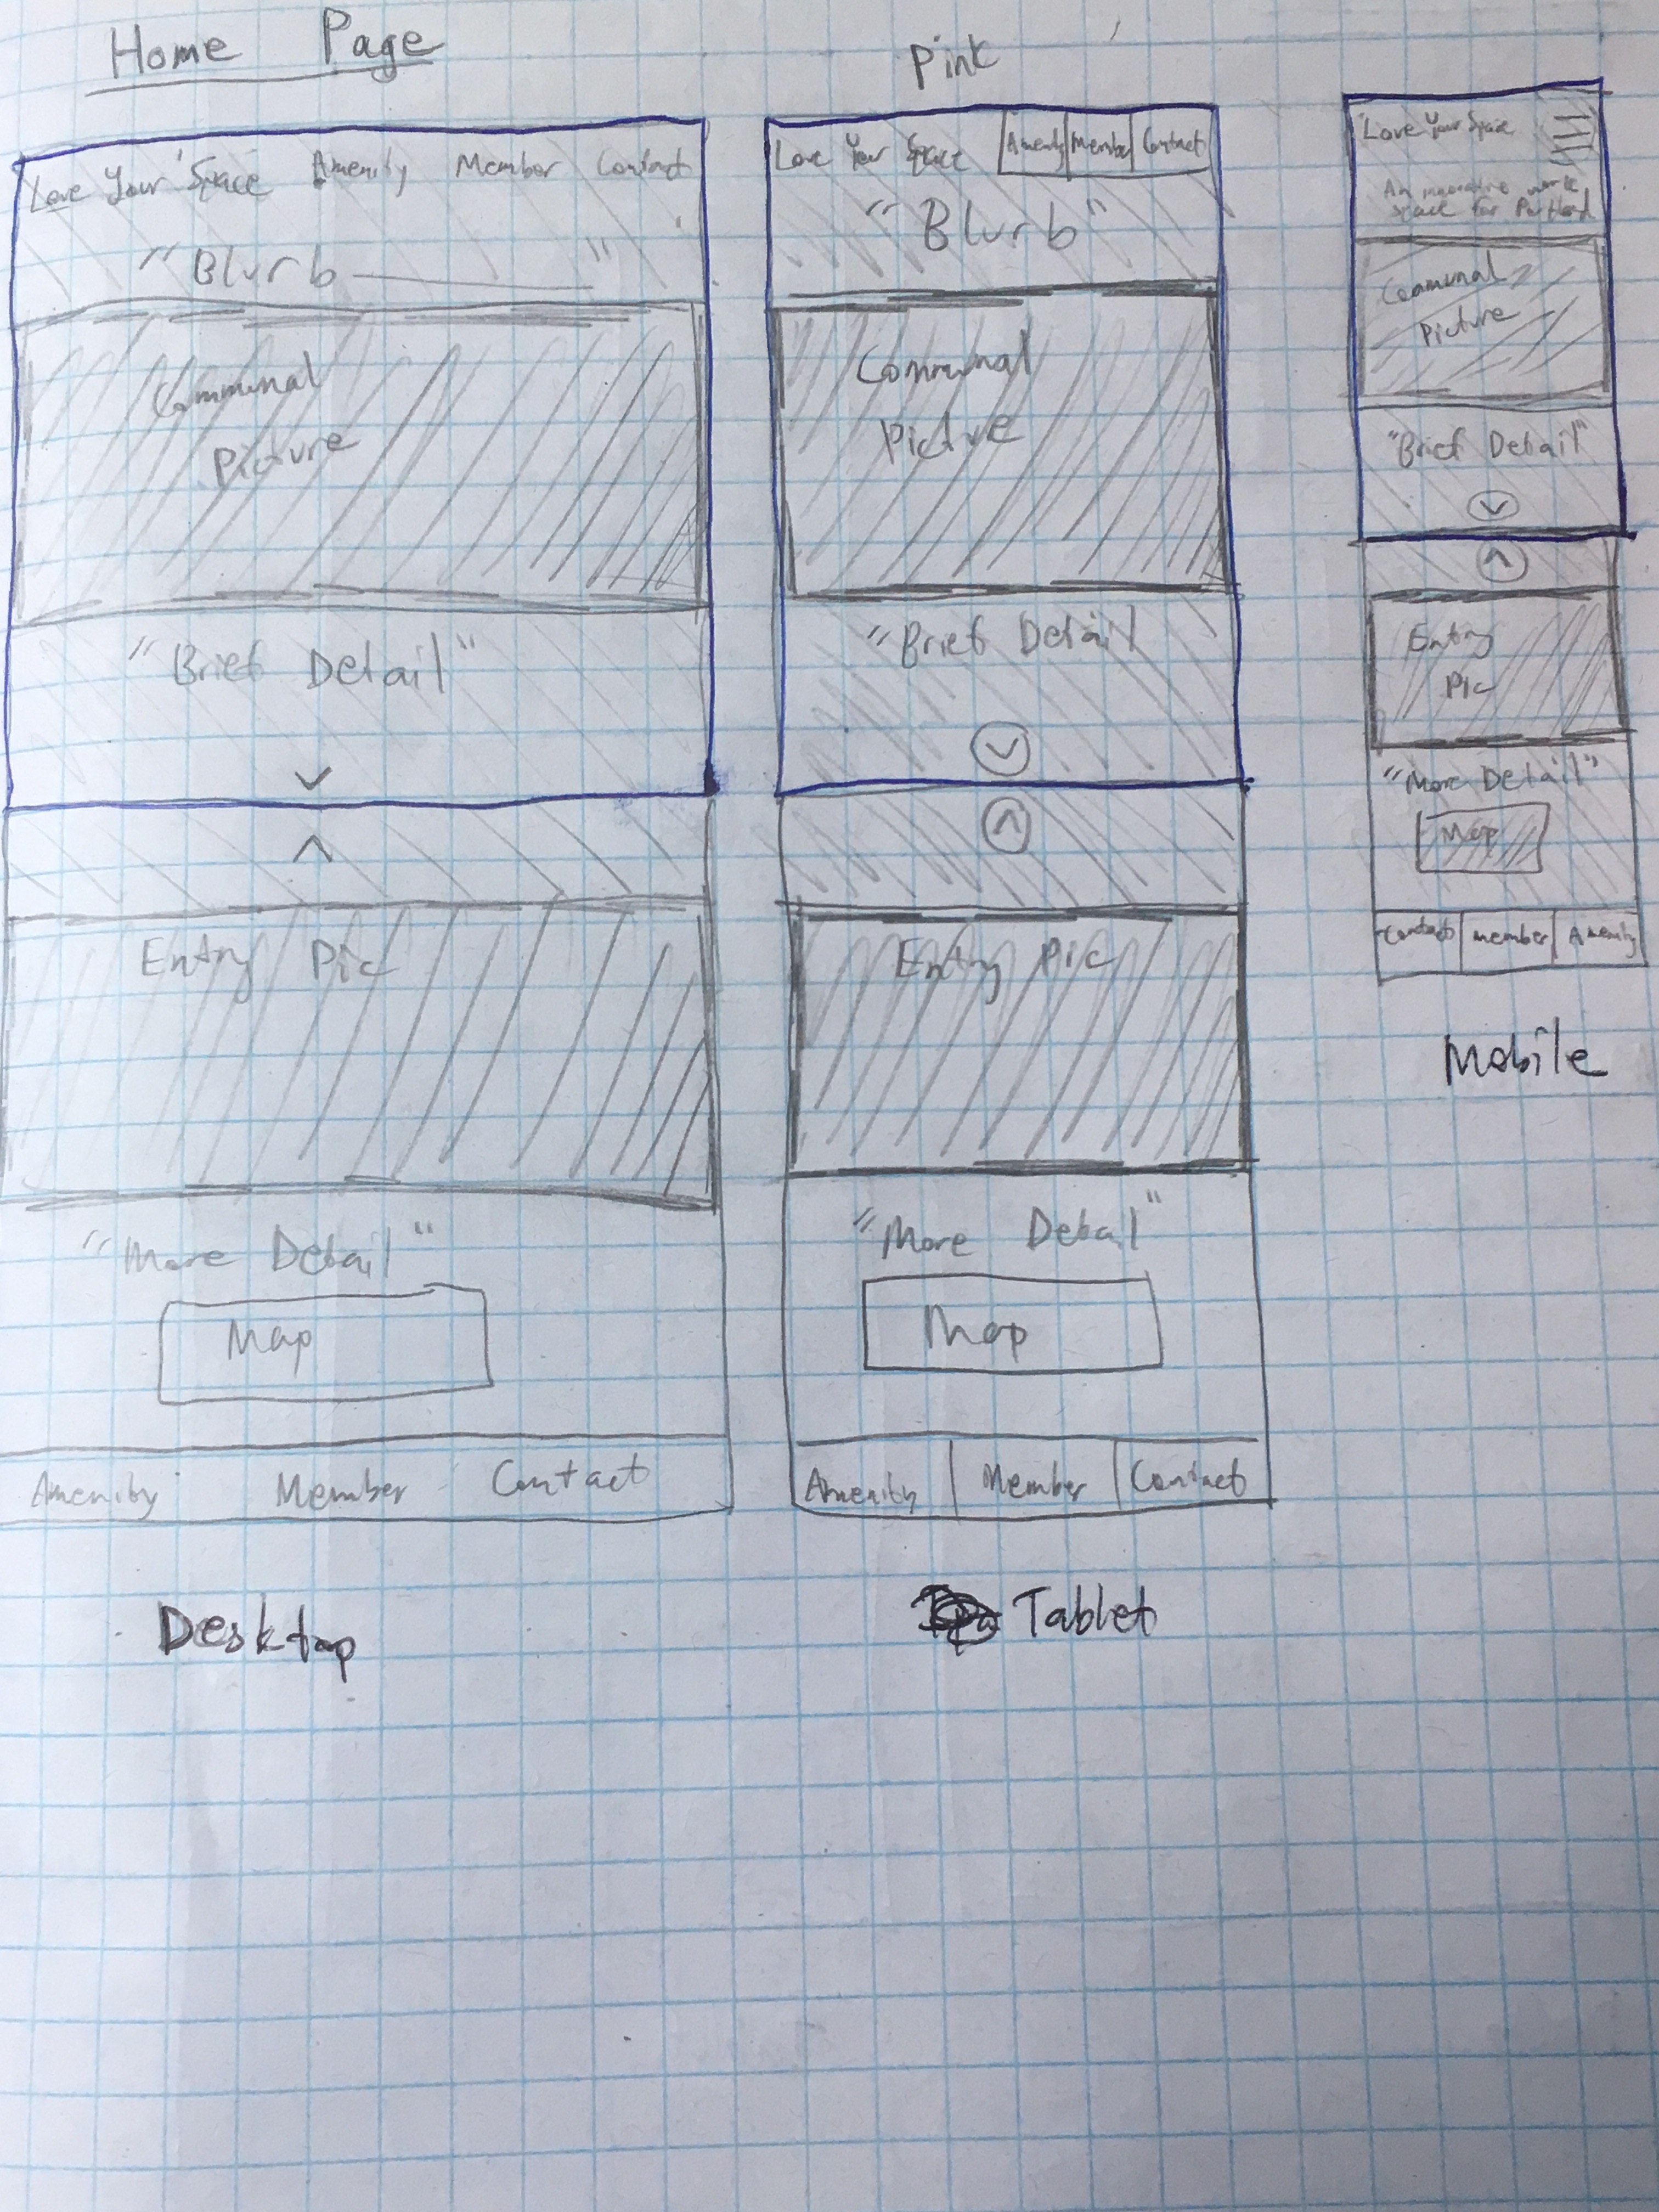 Home Page
Pink
Love Your Space Amenity Member Contact
"Blurb"
Communal
Picture
"Brief Detail"
Entry Pic
"More Detail"
Map
Amenity Member Contact
Desktop
Love Your Space Amenity Member Contact
"Blurb"
Communal
Picture
"Brief Detail
Entry Pic
"More Detail"
Map
Amenity Member Contact
Tablet
Love Your Space
An work
space for Portland
Communal
Picture
"Brief Detail"
Entry
Pic
"More Detail"
Map
Contact Member Amenity
Mobile